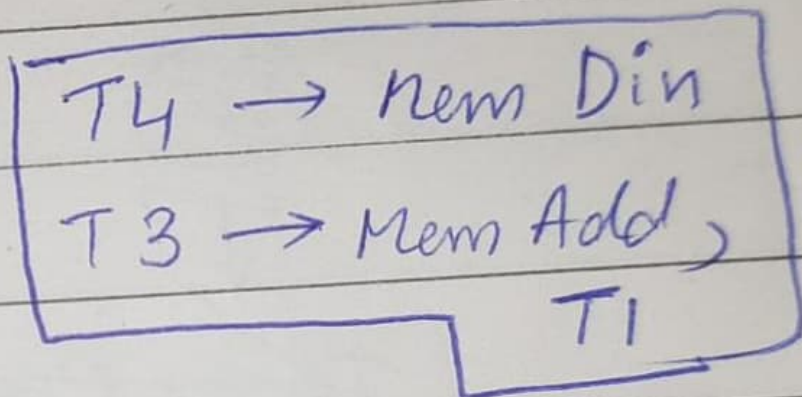 T4 → Mem Din
T3 → Mem Add,
T1